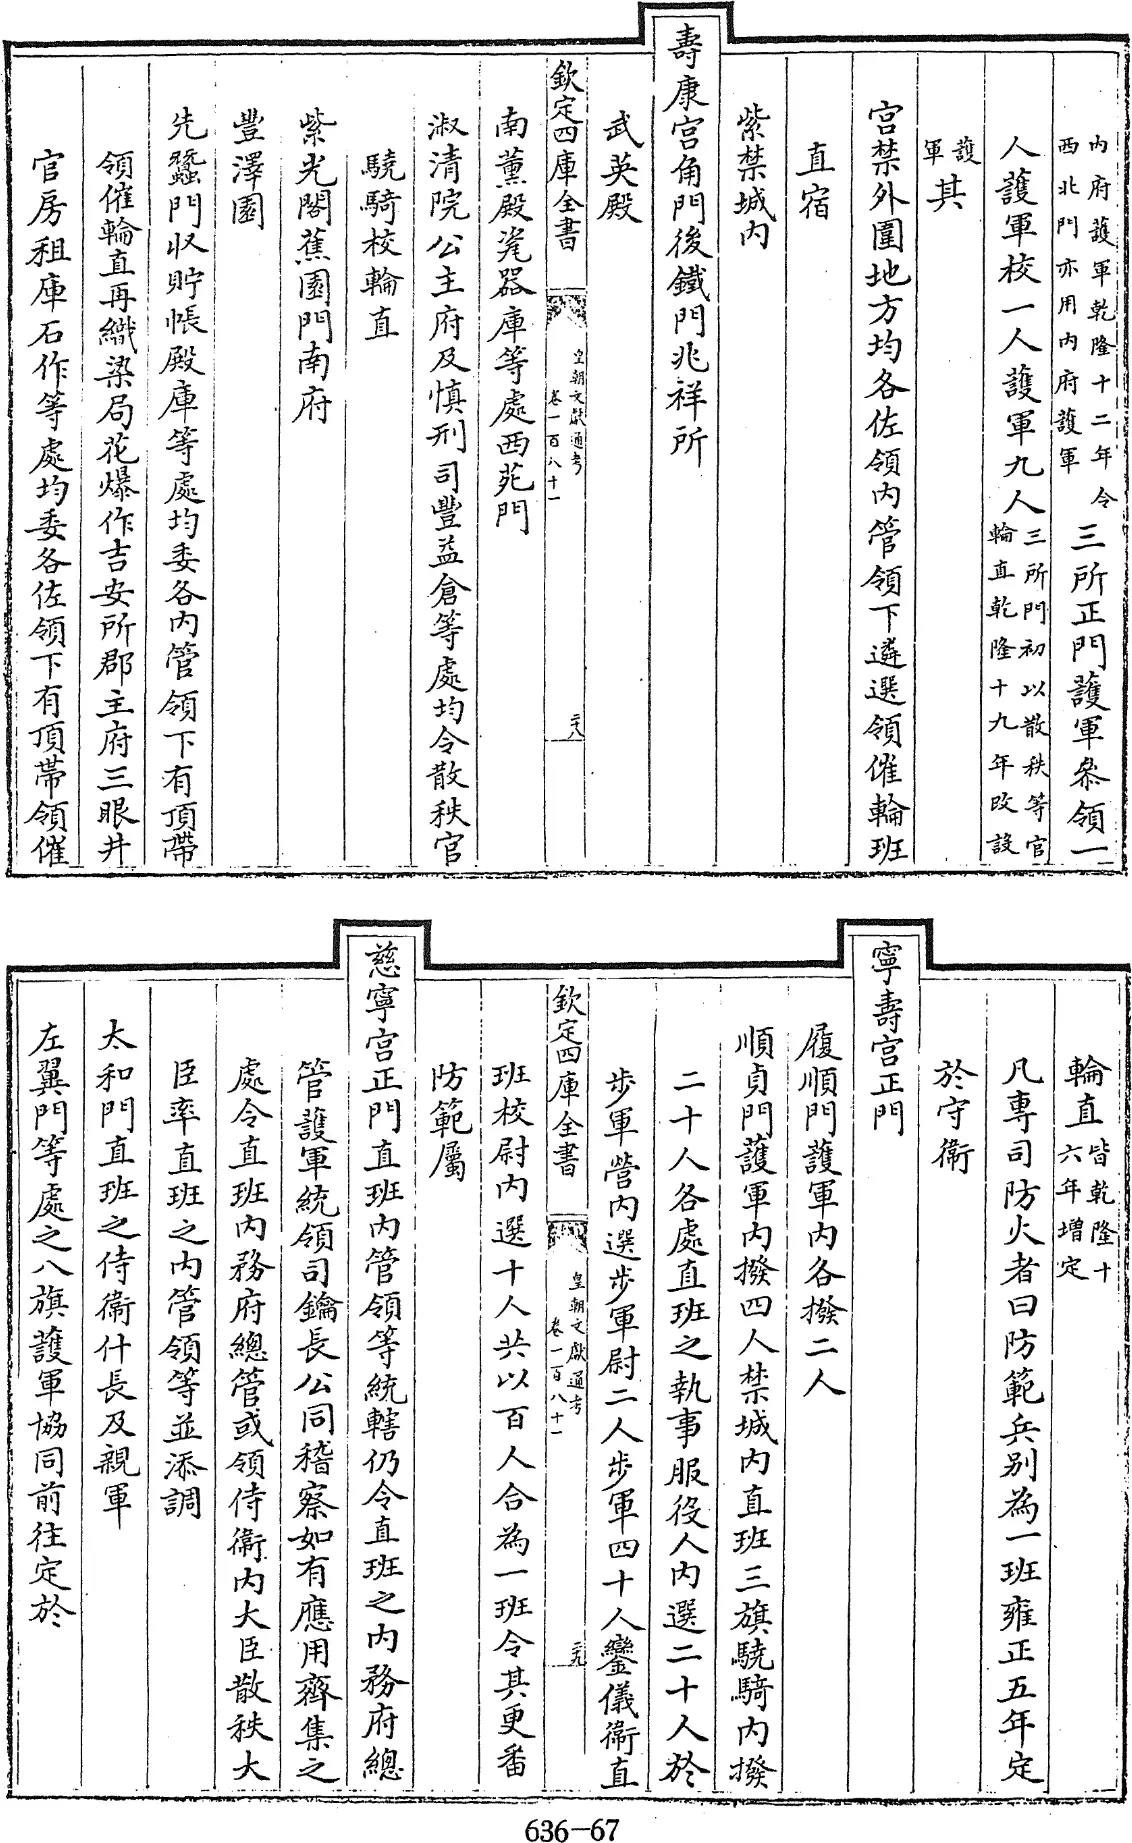 内府護軍乾隆十二年令
西北門亦用内府護軍
三所正門護軍叅領一
人護軍校一人護軍九人
三所門初以散秩等官
輪直乾隆十九年改設
護
軍
其
宫禁外圍地方均各佐領内管領下遴選領催輪班
直宿
紫禁城内
壽康宫角門後鐵門兆祥所
武英殿
欽定四庫全書
皇朝文獻通考
卷一百八十一
二八
南薰殿瓷器庫等處西苑門
淑清院公主府及慎刑司豐益倉等處均令散秩官
驍騎校輪直
紫光閣蕉園門南府
豐澤園
先蠶門収貯帳殿庫等處均委各内管領下有頂帶
領催輪直再織染局花爆作吉安所郡主府三眼井
官房租庫石作等處均委各佐領下有頂帶領催
輪直
皆乾隆十
六年増定
凡專司防火者曰防範兵别為一班雍正五年定
於守衛
寧壽宫正門
履順門護軍内各撥二人
順貞門護軍内撥四人禁城内直班三旗驍騎内撥
二十人各處直班之執事服役人内選二十人於
步軍營内選步軍尉二人步軍四十人鑾儀衛直
欽定四庫全書
皇朝文獻通考
卷一百八十一
二九
班校尉内選十人共以百人合為一班令其更番
防範屬
慈寧宫正門直班内管領等統轄仍令直班之内務府總
管護軍統領司鑰長公同稽察如有應用齊集之
處令直班内務府總管或領侍衛内大臣散秩大
臣率直班之内管領等並添調
太和門直班之侍衛什長及親軍
左翼門等處之八旗護軍協同前往定於
636-67